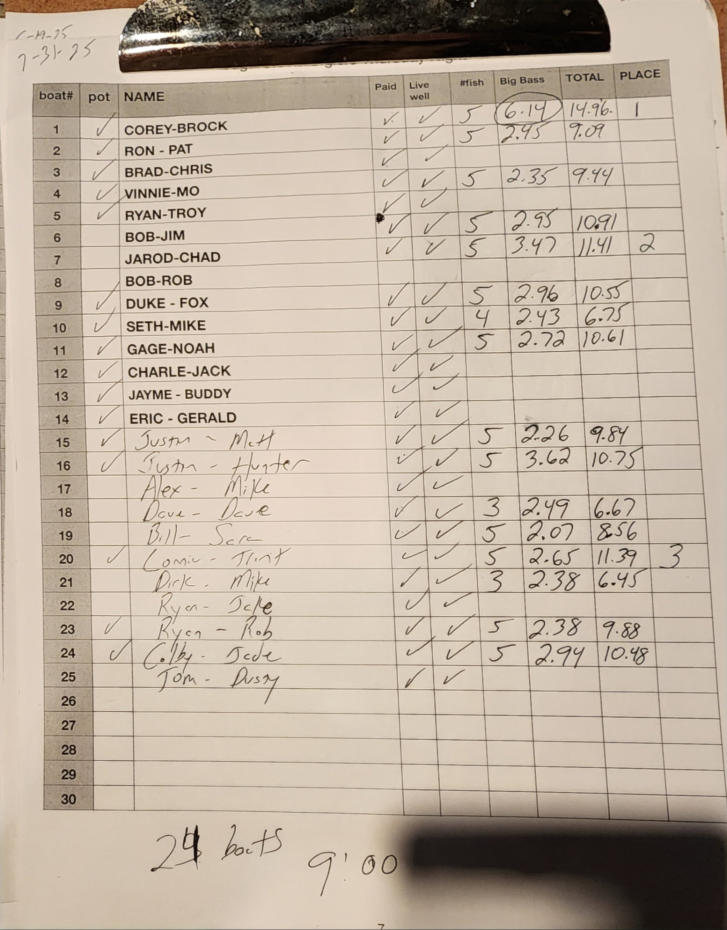 6-19-25
7-31-25
boat# pot NAME Paid Live well #fish Big Bass TOTAL PLACE
1 ✓ COREY-BROCK ✓ ✓ 5 6.14 14.96 1
2 ✓ RON - PAT ✓ ✓ 5 2.95 9.09
3 ✓ BRAD-CHRIS ✓ ✓
4 ✓ VINNIE-MO ✓ ✓ 5 2.35 9.44
5 ✓ RYAN-TROY ✓ ✓
6 BOB-JIM ✓ ✓ 5 2.95 10.91
7 JAROD-CHAD ✓ ✓ 5 3.47 11.41 2
8 BOB-ROB
9 ✓ DUKE - FOX ✓ ✓ 5 2.96 10.55
10 ✓ SETH-MIKE ✓ ✓ 4 2.43 6.75
11 ✓ GAGE-NOAH ✓ ✓ 5 2.72 10.61
12 ✓ CHARLE-JACK ✓ ✓
13 ✓ JAYME - BUDDY ✓ ✓
14 ✓ ERIC - GERALD ✓ ✓
15 ✓ Justin - Matt ✓ ✓ 5 2.26 9.84
16 ✓ Justin - Hunter ✓ ✓ 5 3.62 10.75
17 Alex - Mike ✓ ✓
18 Dave - Dave ✓ ✓ 3 2.49 6.67
19 Bill - Sara ✓ ✓ 5 2.07 8.56
20 ✓ ✓ ✓ 5 2.65 11.39 3
21 Dick - Mike ✓ ✓ 3 2.38 6.45
22 Ryan - Jake ✓ ✓
23 ✓ Ryan - Rob ✓ ✓ 5 2.38 9.88
24 ✓ Colby - Jade ✓ ✓ 5 2.94 10.48
25 Tom - Dusty ✓ ✓
26
27
28
29
30
24 boats
9:00